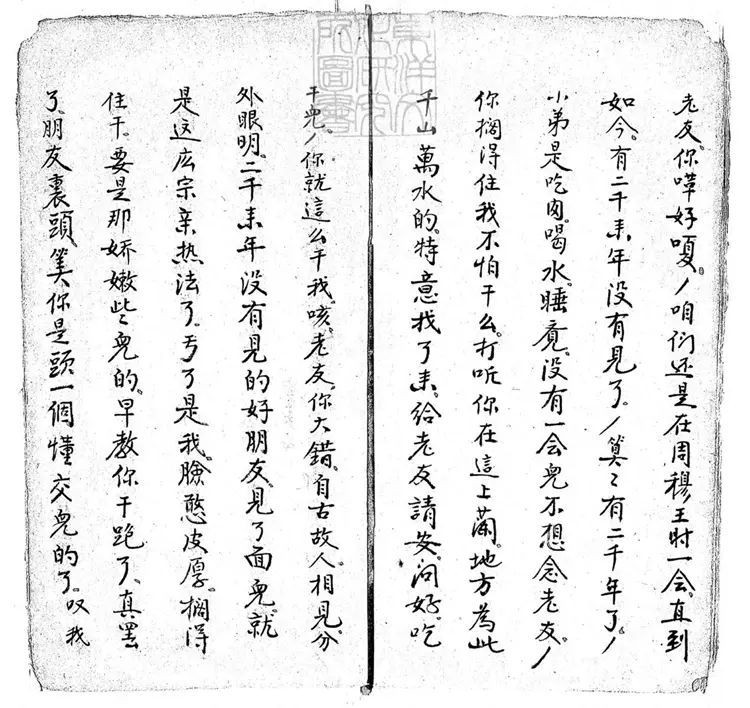 老友。你嘡好嗄。／咱们还是在周穆王时一会。直到
如今。有二千来年没有見了。／算〻有二千年了。／
小弟是吃肉。喝水。睡竟。没有一会兒不想念老友。／
你擱得住我不怕干么。打听你在這上蘭。地方為此
千山萬水的。特意找了来。给老友請安。问好。吃
干兜。／你就這么干我。咳。老友。你大錯。自古故人。相見。分
外眼明。二千来年没有見的好朋友。見了面兒。就
是这庅宗亲热法了。亏了是我。臉憨皮厚。擱得
住干。要是那娇嫩些〻兒的。早教你干跑了。真罢
了。朋友裏頭。笑你是頭一個懂交兒的了。叹我
東洋文化研究所圖書